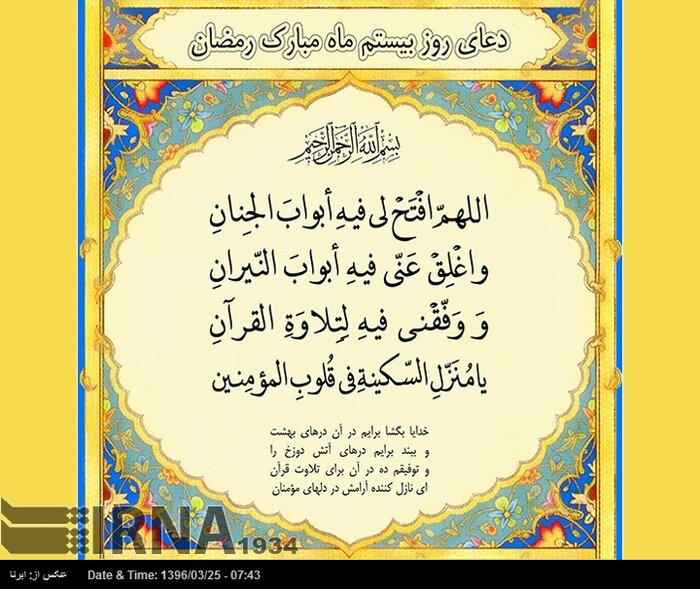 دعای روز بیستم ماه مبارک رمضان
بِسْمِ اللهِ الرَّحْمنِ الرَّحِيمِ
اللهمّ افْتَحْ لی فیهِ أبوابَ الجِنانِ
واغْلِقْ عَنّی فیهِ أبوابَ النّیرانِ
وَ وَفّقْنی فیهِ لِتِلاوَةِ القرآنِ
یامُنَزّلِ السّکینةِ فی قُلوبِ المؤمِنین
خدایا بگشا برایم در آن درهای بهشت
و ببند برایم درهای آتش دوزخ را
و توفیقم ده در آن برای تلاوت قرآن
ای نازل کننده آرامش در دلهای مؤمنان
IRNA 1934
عکس از: ایرنا Date & Time: 1396/03/25 - 07:43